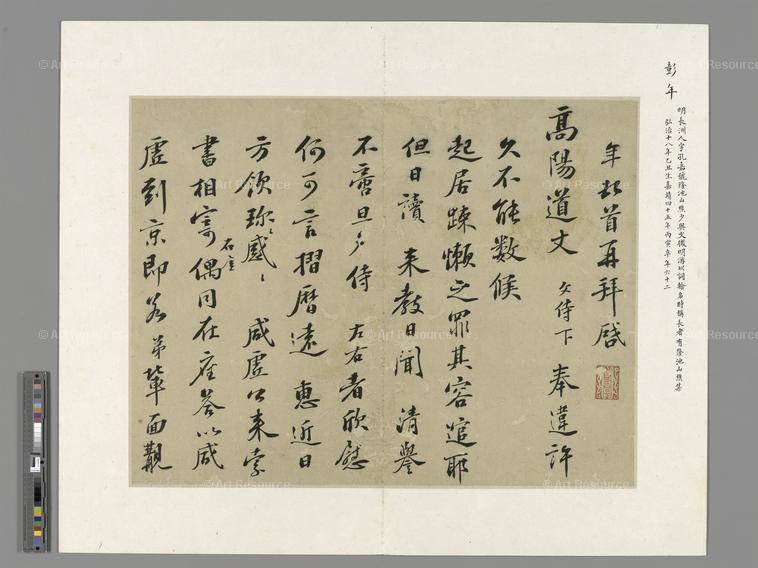 彭年
明長洲人字孔嘉號隆池山樵少與文徵明游以詞翰名時稱長者有隆池山樵集
弘治十八年乙丑生嘉靖四十五年丙寅卒年六十二
年頓首再拜啓
高陽道丈 文侍下 奉違許
久不能數候
起居踈懶之罪其容逭耶
但日讀 来教日聞 清譽
不啻旦夕侍 左右者欣慰
何可言摺曆遠 惠近日
方飲珎〻感〻 咸虛公来索
書相寄偶同在座答以咸
虛到京即若弟輩面覿
© Art Resource